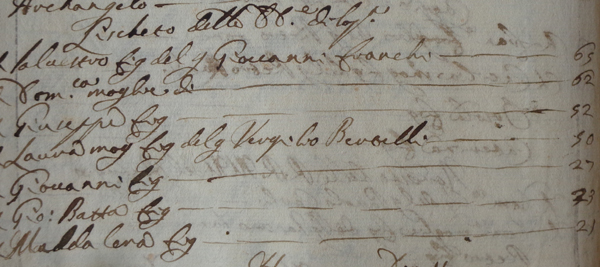 Archangelo
Pischeto dello
Salvestro fig del q Giovanni Franchi 65
Dom.ca moglie di 62
Giuseppe fig 32
Laura mog fig del q Vergilio Bertelli 30
Giovanni fig 27
Gio: Batta fig 23
Maddalena fig 21